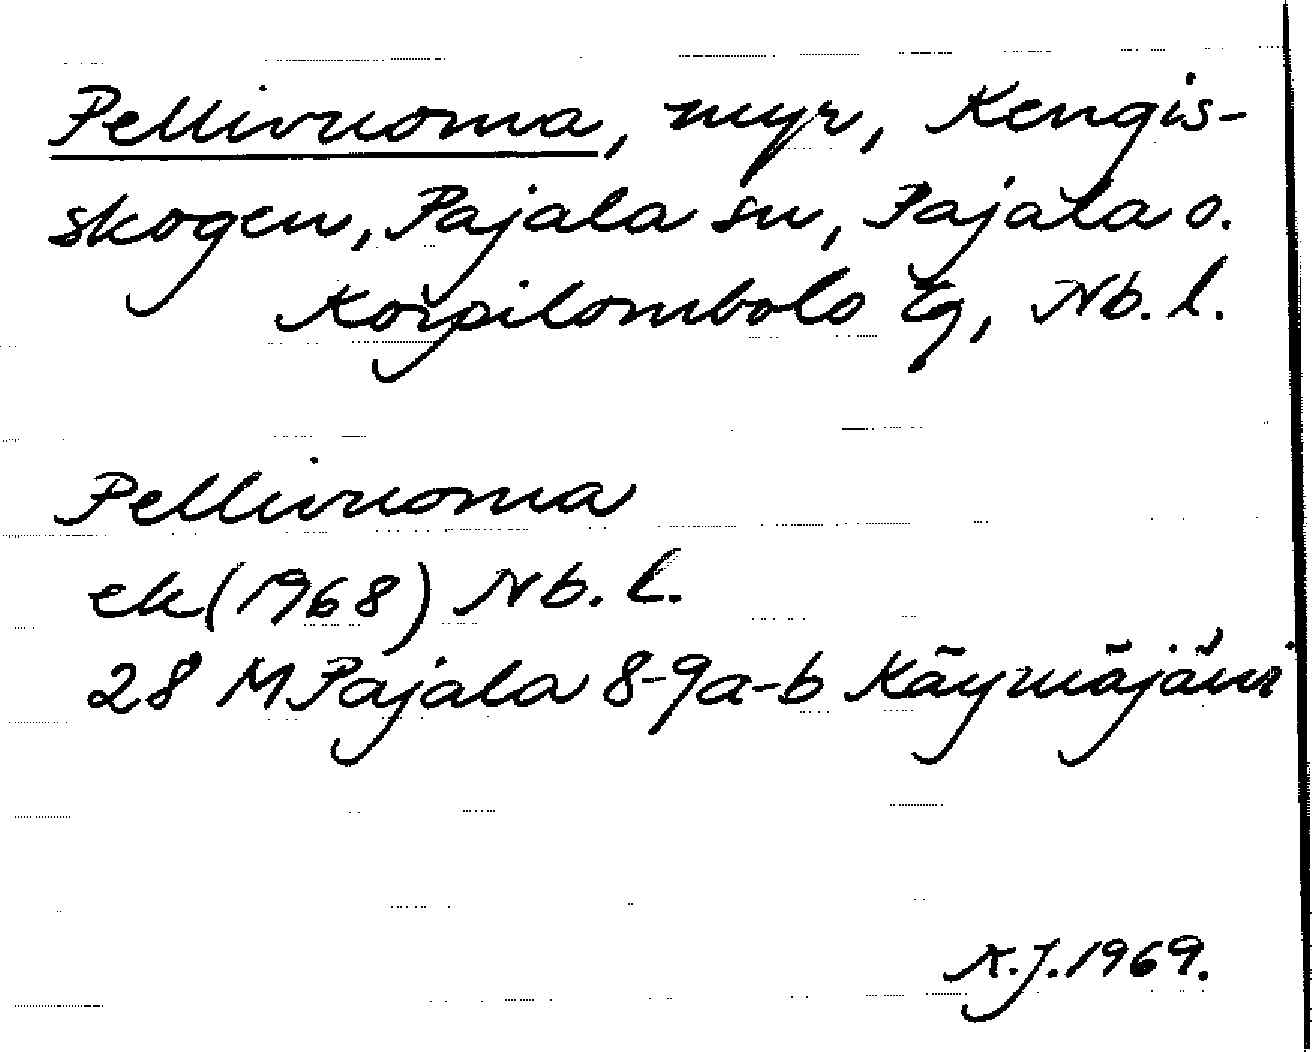 Pellivuoma, myr, Kengis-
skogen, Pajala sn, Pajala o.
Korpilombolo tg, Nb. l.
Pellivuoma
ek (1968) Nb. l.
28 M Pajala 8-9a-b Käymäjärvi
K.J. 1969.